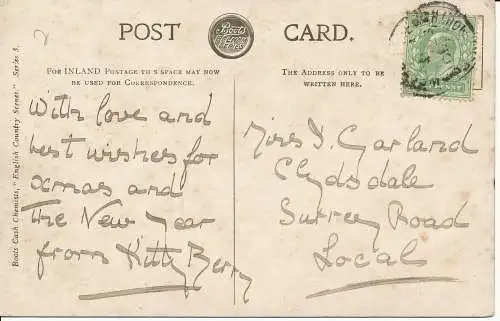 POST CARD.
Boots
For INLAND Postage this space may now
be used for Correspondence.
The Address only to be
written here.
Boots Cash Chemists, "English Country Scenes." Series 3.
With love and
best wishes for
Xmas and
The New Year
from Kitty Berry
Miss D. Garland
Clydsdale
Surrey Road
Local